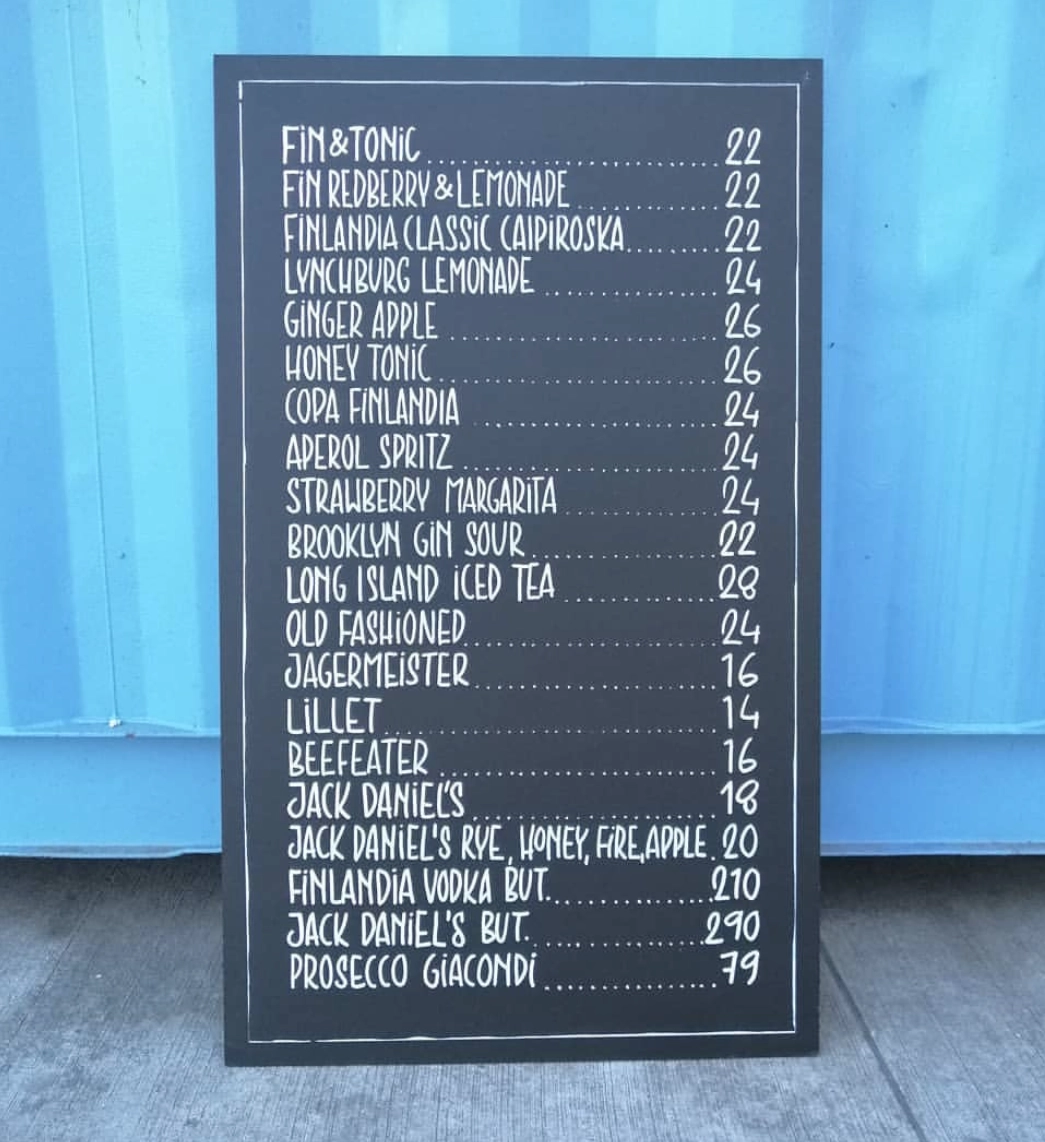 FIN & TONIC 22
FIN REDBERRY & LEMONADE 22
FINLANDIA CLASSIC CAIPIROSKA 22
LYNCHBURG LEMONADE 24
GINGER APPLE 26
HONEY TONIC 26
COPA FINLANDIA 24
APEROL SPRITZ 24
STRAWBERRY MARGARITA 24
BROOKLYN GIN SOUR 22
LONG ISLAND ICED TEA 28
OLD FASHIONED 24
JAGERMEISTER 16
LILLET 14
BEEFEATER 16
JACK DANIEL'S 18
JACK DANIEL'S RYE, HONEY, FIRE, APPLE 20
FINLANDIA VODKA BUT. 210
JACK DANIEL'S BUT. 290
PROSECCO GIACONDI 79